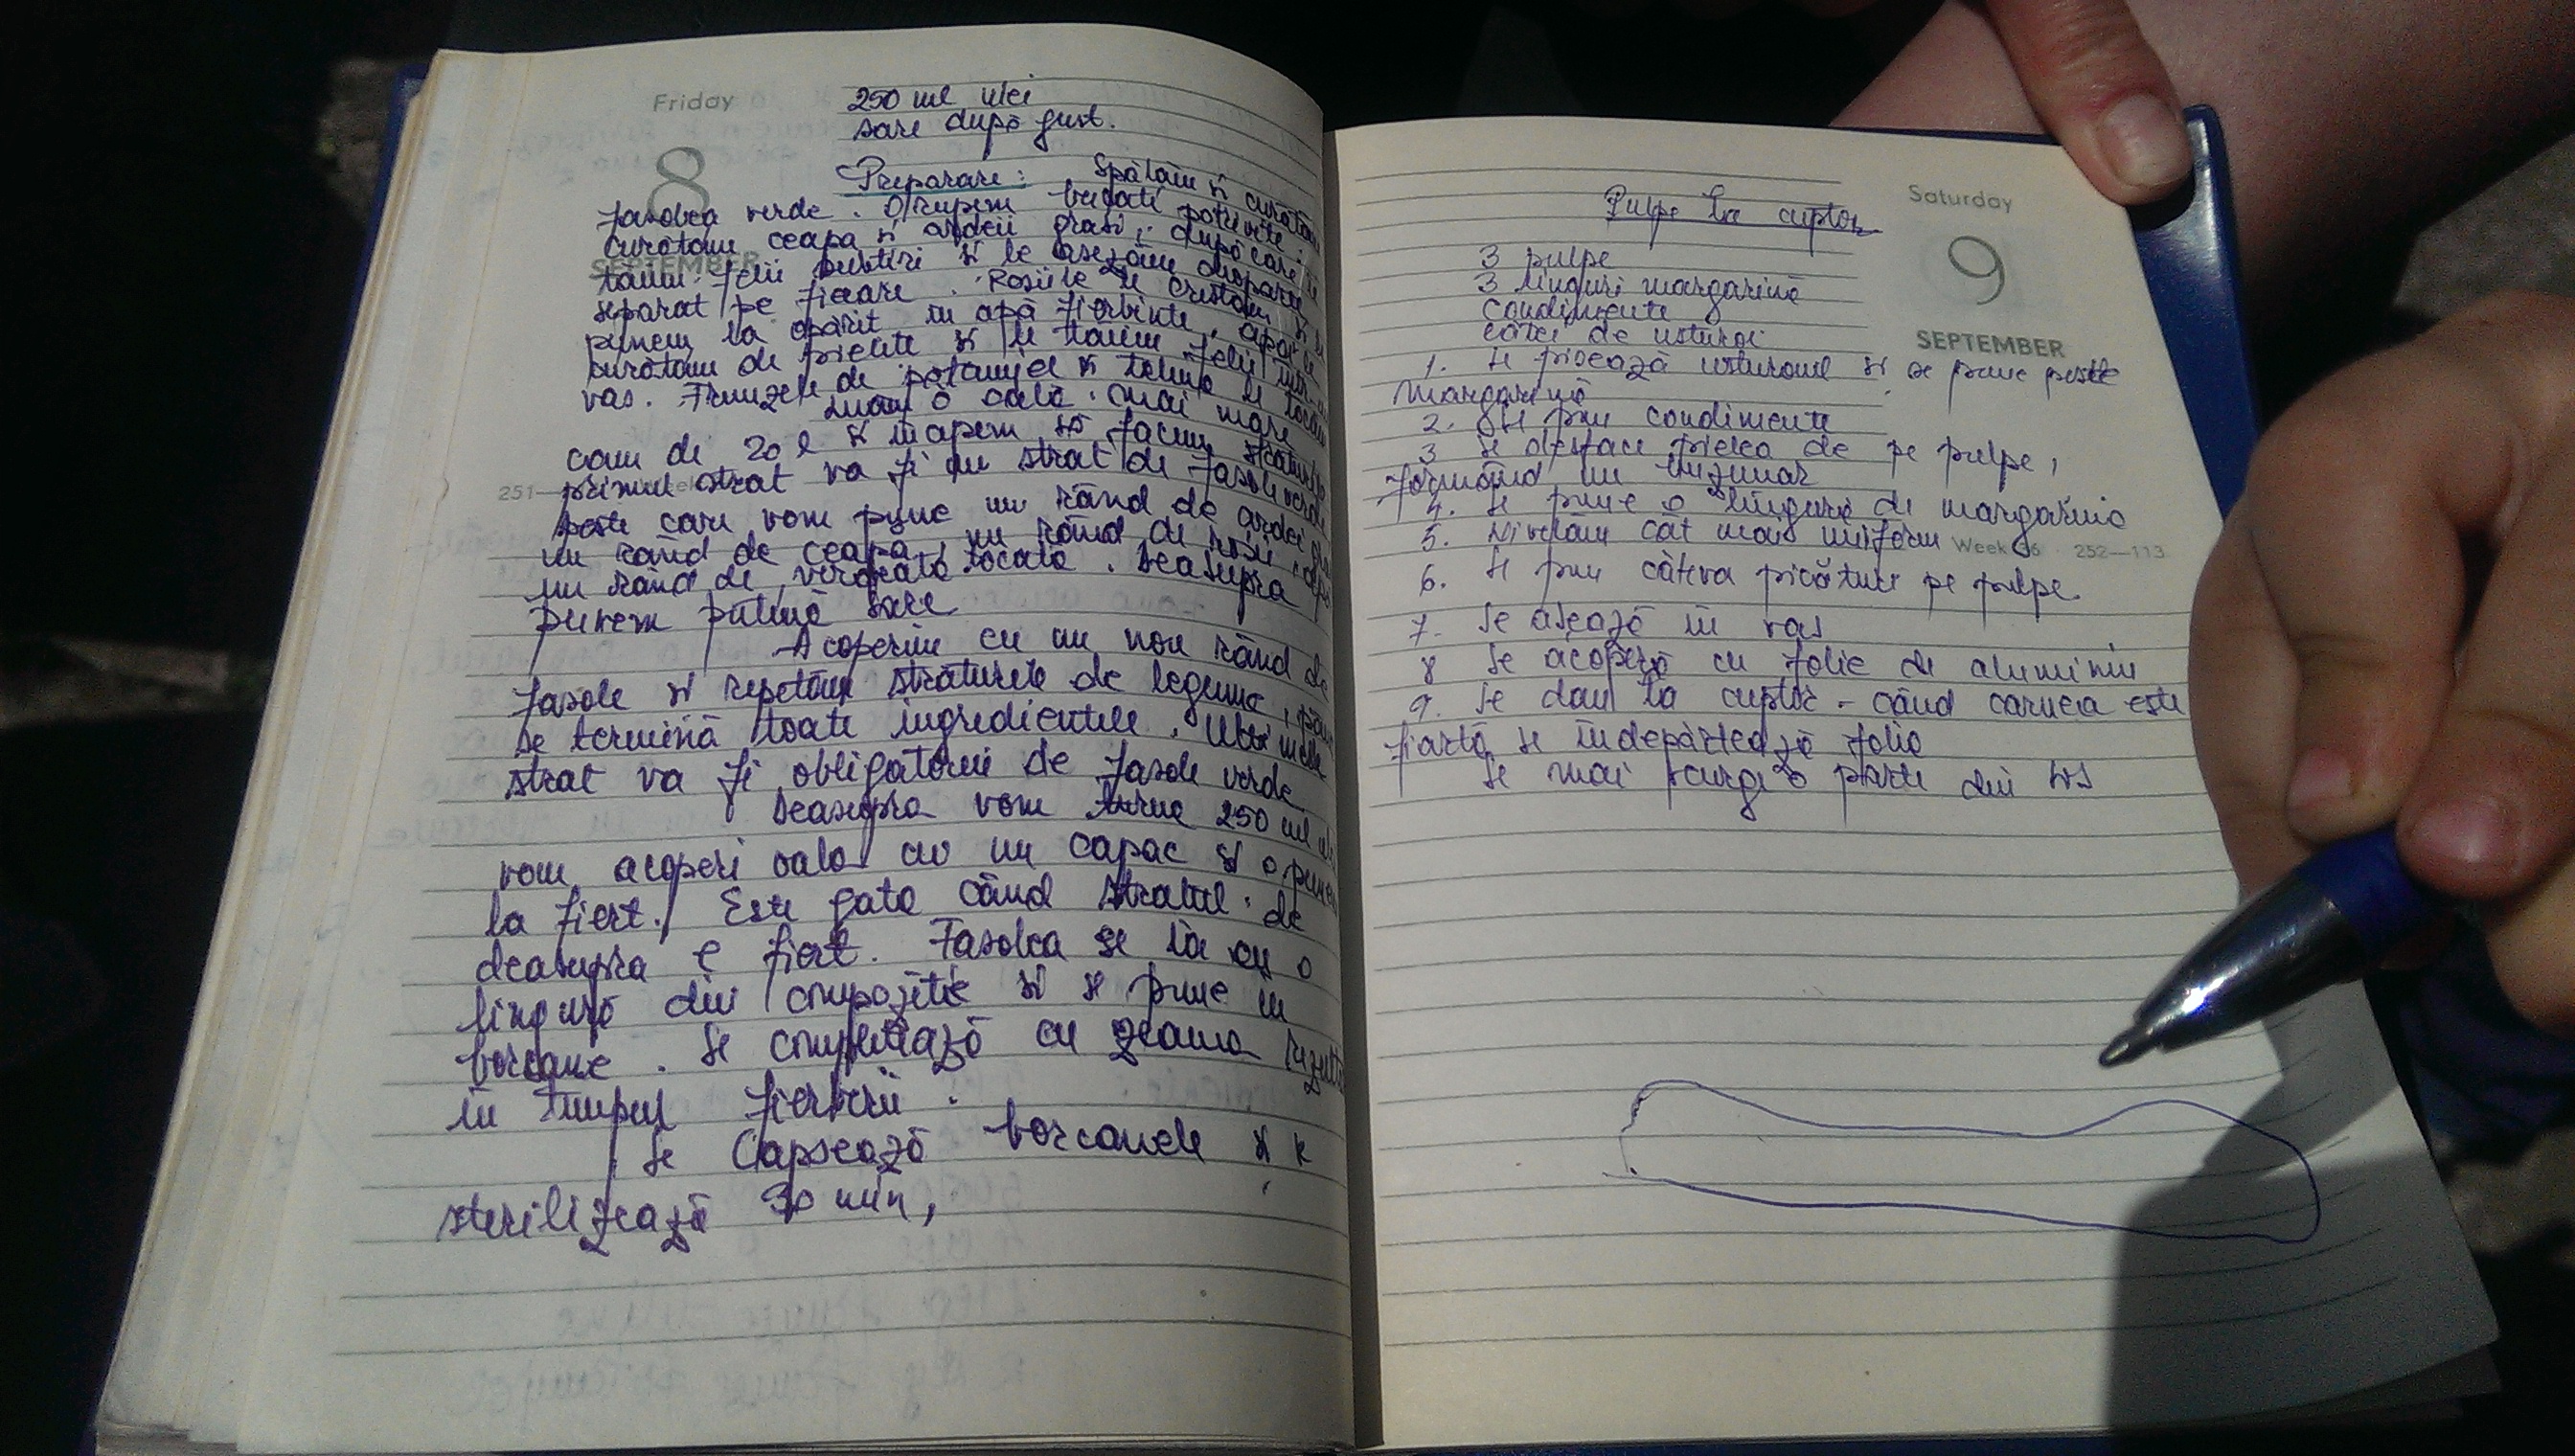 Friday
8
SEPTEMBER
250 ml ulei
sare după gust.
Preparare: Spălăm și curățăm
fasolea verde. O rupem bucăți potrivite.
curățăm ceapa și ardeii grași, după care le
tăiem felii subțiri și le așezăm deoparte
separat pe fiecare. Roșiile le crestăm și le
punem la opărit în apă fierbinte, apoi le
curățăm de pielițe și le tăiem felii într-un
vas. Frunzele de pătrunjel și țelină le tocăm
Luăm o oală mai mare
cam de 20 l și începem să facem straturile
primul strat va fi un strat de fasole verde
251— Week
peste care vom pune un rând de ardei grași
un rând de ceapă, un rând de roșii, apoi
un rând de verdeață tocată. Deasupra
punem puțină sare
Acoperim cu un nou rând de
fasole și repetăm straturile de legume, până
se termină toate ingredientele. Ultimele
strat va fi obligatoriu de fasole verde
Deasupra vom turna 250 ml ulei
vom acoperi oala cu un capac și o punem
la fiert. Este gata când stratul de
deasupra e fiert. Fasolea se ia cu o
lingură din compoziție și se pune în
borcane. Se completează cu zeama rezultată
în timpul fierberii.
Se Capsează borcanele și se
sterilizează 30 min,
Saturday
9
SEPTEMBER
Pulpe la cuptor
3 pulpe
3 linguri margarină
condimente
căței de usturoi
1. Se pisează usturoiul și se pune peste
margarină
2. Se pun condimente
3 Se desface pielea de pe pulpe,
formând un buzunar
4. Se pune o lingură de margarină
5. Nivelăm cât mai uniform
Week 36 252—113
6. Se pun câteva picături pe pulpe.
7. Se așează în vas
8 Se acoperă cu folie de aluminiu
9. Se dau la cuptor - când carnea este
fiartă se îndepărtează folia
Se mai scurge o parte din sos